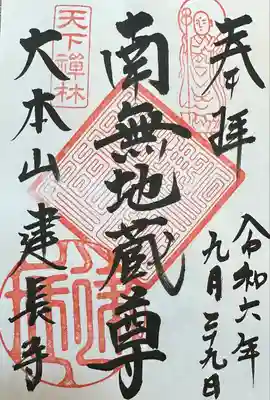 奉拝
令和六年
九月二九日
南無地蔵尊
天下禅林
大本山建長寺